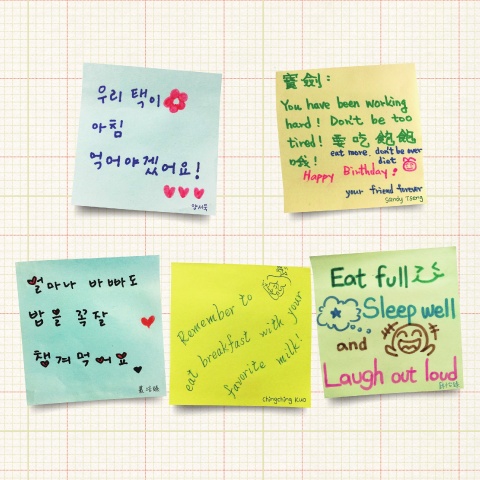 우리 택이
아침
먹어야겠어요!
寶劍:
You have been working
hard! Don't be too
tired! 要吃飽飽
哦!
eat more, don't be over
diet
Happy Birthday!
your friend forever
Sandy Tseng
얼마나 바빠도
밥을 꼭 잘
챙겨 먹어요
Remember to
eat breakfast with your
favorite milk!
Chingching Kuo
Eat full
Sleep well
and
Laugh out loud